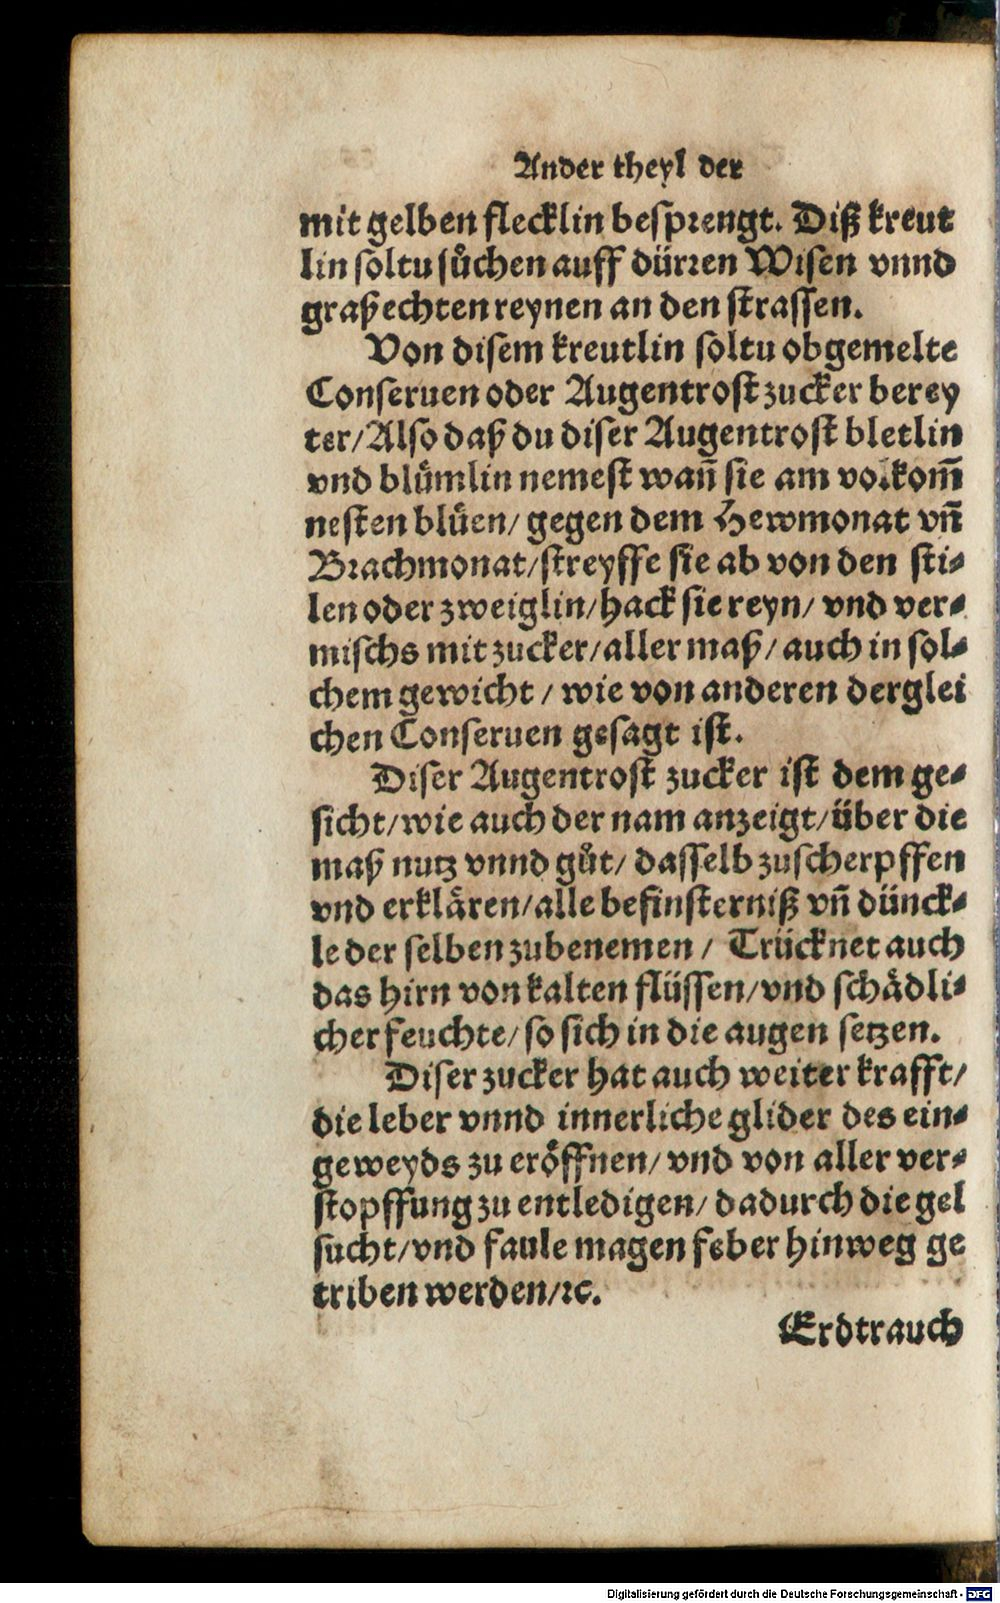 Ander theyl der
mit gelben flecklin besprengt. Diß kreut
lin soltu sůchen auff dürren Wisen vnnd
graßechten reynen an den strassen.
Von disem kreutlin soltu obgemelte
Conseruen oder Augentrost zucker berey
ter/Also daß du diser Augentrost bletlin
vnd blůmlin nemest wañ sie am volkom̃
nesten blůen/ gegen dem Hewmonat vñ
Brachmonat/streyffe sie ab von den sti⸗
len oder zweiglin/hack sie reyn/ vnd ver⸗
mischs mit zucker/aller maß/ auch in sol⸗
chem gewicht / wie von anderen derglei
chen Conseruen gesagt ist.
Diser Augentrost zucker ist dem ge⸗
sicht/wie auch der nam anzeigt/über die
maß nutz vnnd gůt/ dasselb zuscherpffen
vnd erklären/alle befinsterniß vñ dünck⸗
le der selben zubenemen / Trücknet auch
das hirn von kalten flüssen/vnd schädli⸗
cher feuchte/ so sich in die augen setzen.
Diser zucker hat auch weiter krafft/
die leber vnnd innerliche glider des ein⸗
geweyds zu eröffnen/ vnd von aller ver⸗
stopffung zu entledigen/ dadurch die gel
sucht/vnd faule magen feber hinweg ge
triben werden/ꝛc.
Erdtrauch
Digitalisierung gefördert durch die Deutsche Forschungsgemeinschaft - DFG